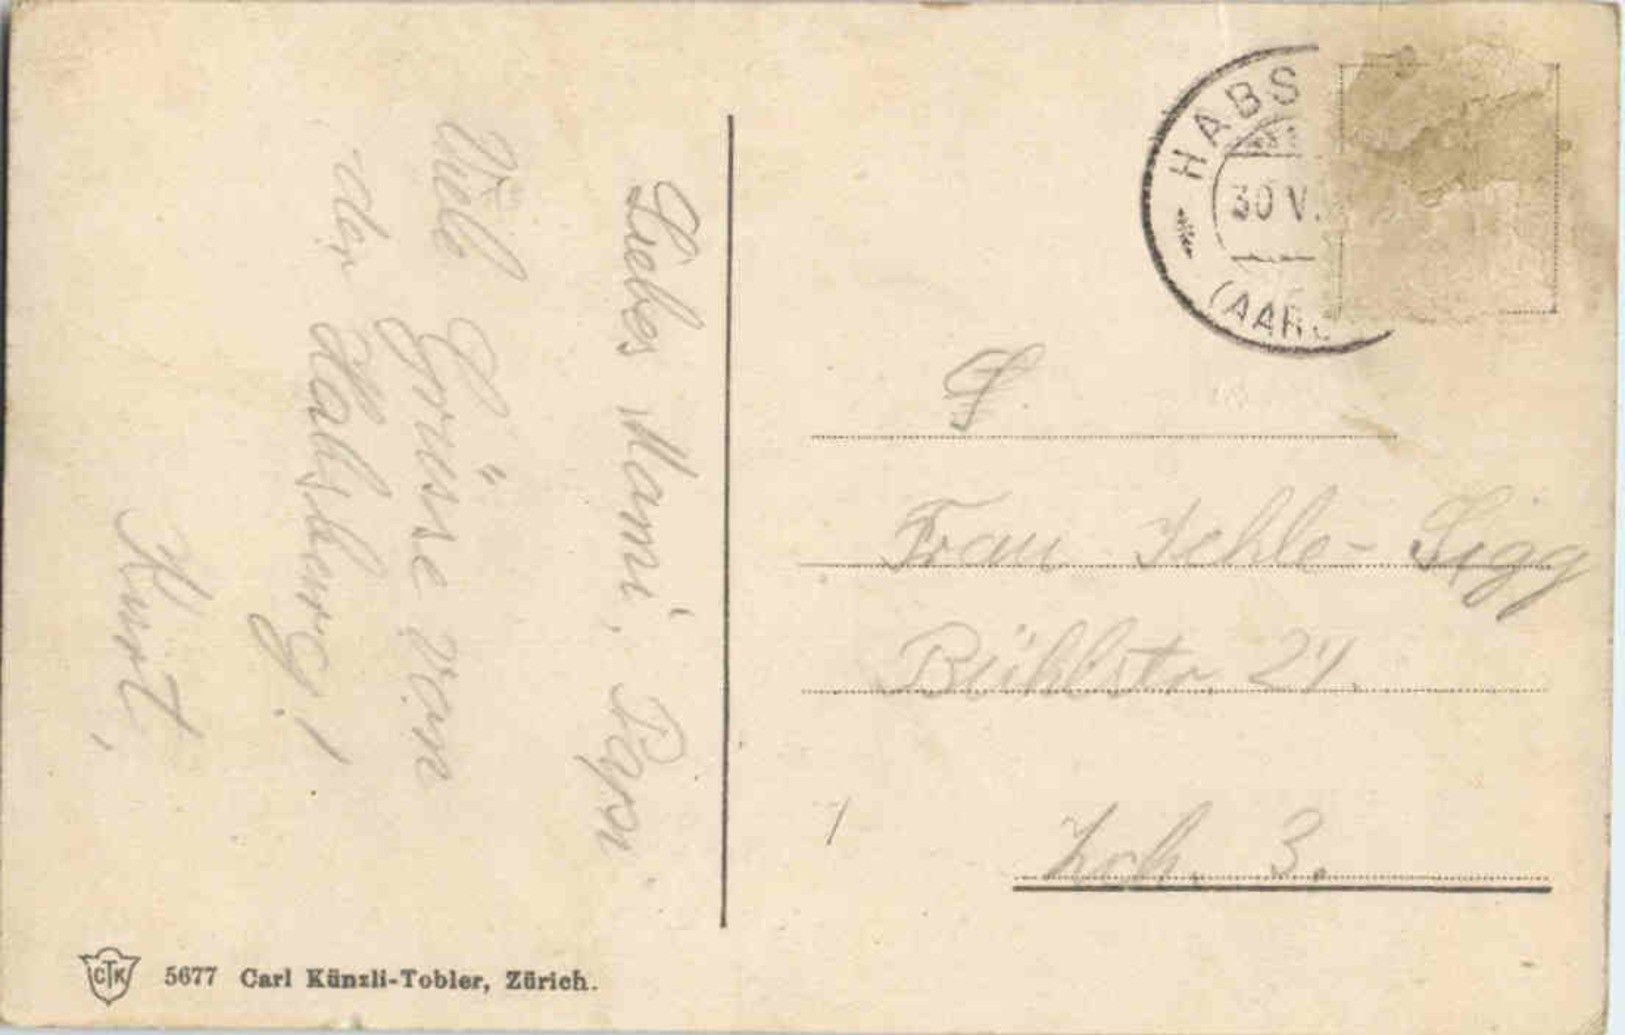 Liebes Mami, Papi
Viele Grüsse von
der Habsburg!
Kurt,
HABS
30 V.
(AAR
Frau Jehle-Sigg
Bühlstr. 21.
Zch. 3.
CTK 5677 Carl Künzli-Tobler, Zürich.